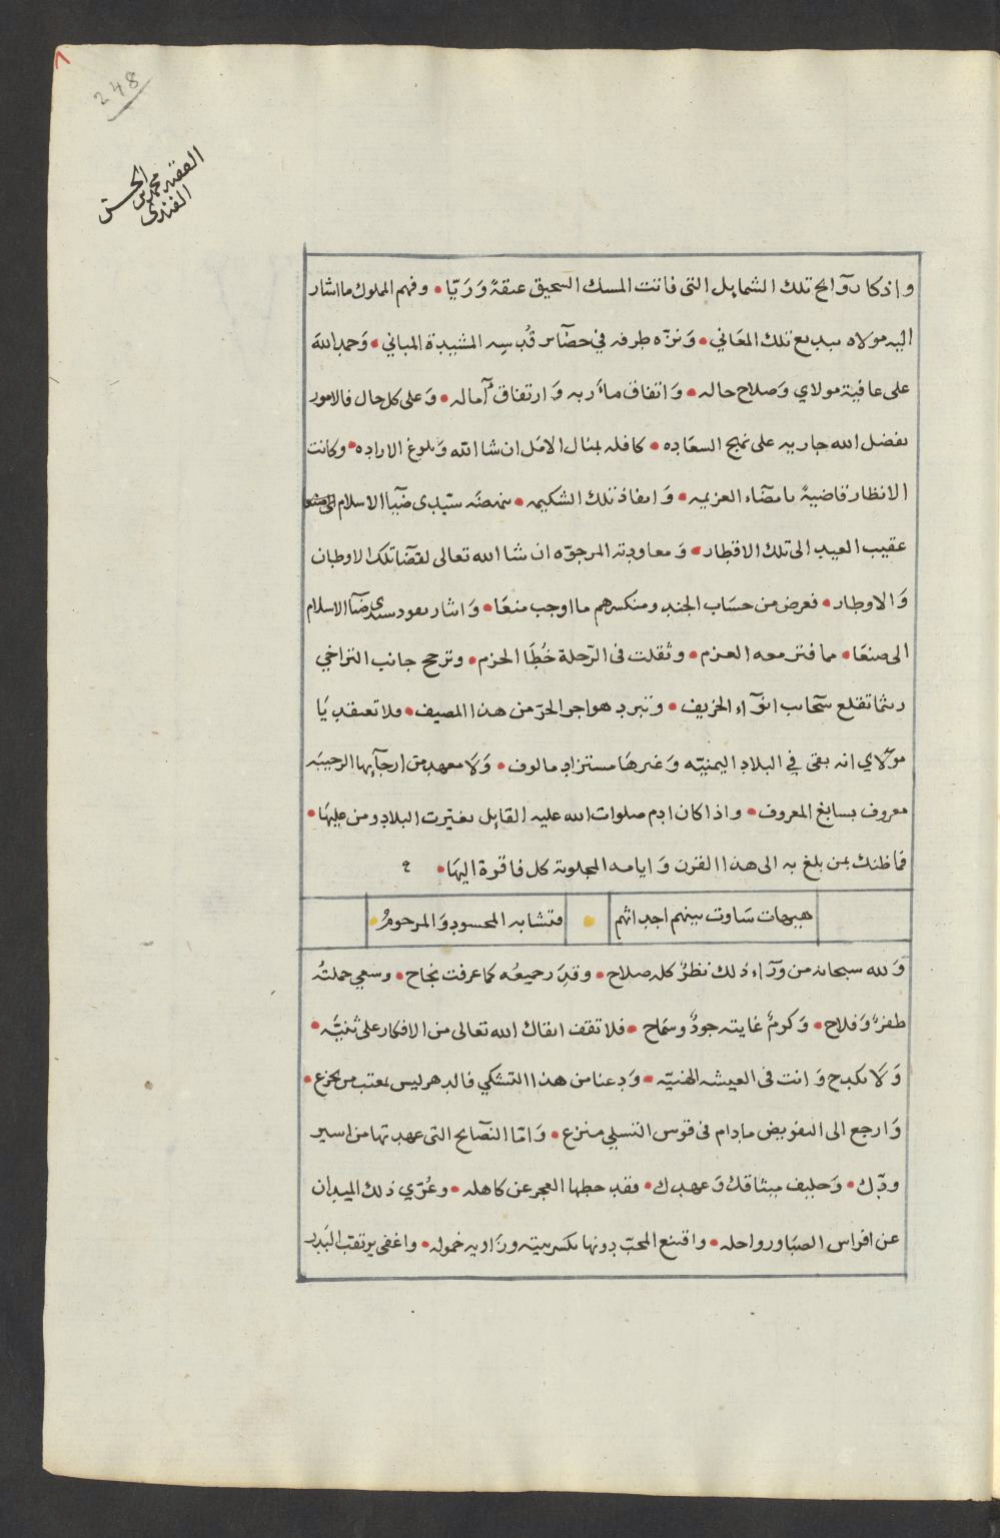 ٨
248
الفقيه محمد بن الحسن
الفندى
واذكا روآئح تلك الشمايل التى فاتت المسك السحيق عبقةً وَرَيّا • وفهم المملوك ما اشار
اليه مولاه ببديع تلك المعَاني • وَنزّه طرفه في حضآير قُدسِه المشيدة المباني • وَحمد اللهَ
على عافية مولاي وَصلاح حاله • وَاتفاق مأَربه وَارتفاق آماله • وَعلى كل حال فالامور
بفضل الله جاريه على نهج السعَاده • كافله بمنال الامَل ان شا الله وَبلوغ الاراده • وكانت
الانظار قاضيةً بامضَاء العزيمه • وَانفاذ تلك الشكيمه • بنهضَه سيّدى ضيَا الاسلام
عقيب العيد الى تلك الاقطار • وَمعاودته المرجوّه ان شا الله تعالى لقضَا تلك الاوطان
وَالاوطار • فعرض من حسَاب الجند ومنكسرهم ما اوجب منعَا • وَاشار بعود سيدى ضيَآ الاسلام
الى صنعَا • مما فتر معه العزم • وثقلت فى الرّحلة خُطَا الحزم • وترجح جانب التراخي
ريثما تقلع سَحَائب انوَآء الخريف • وتبرد هواجر الحرّ من هذا المصيف • فلا تعتقد يَا
مولاي انه بقى في البلاد اليمنيّه وَغيرهَا مستزاد مالوف • وَلَا معهد من ارجآئِها الرحيبَه
معروف بسابغ المعروف • واذا كان ادم صلوات الله عليه القايل تغيّرت البلاد ومن عليهَا •
فمَا ظنك بمن بلغ به الى هذا القرن وَايامه المجلوبة كل فاقرة اليهَا •
هيهات سَاوت بينهم اجداثهم • وتشابه المحسود وَالمرحومُ •
وَلله سبحانه من ورَآء ذلك نظرٌ كله صلاح • وقدرٌ جميعُه كما عرفت نجاح • وسعي جملتُه
ظفرٌ وَفلاح • وَكرمٌ غايته جودٌ وسمَاح • فلا تقف ابقاك الله تعالى من الافكار على ثنيّه •
وَلَا تكدح وَانت فى العيشه الهنيّه • وَدعنا من هذا التشكي فالدهر ليس بمعتب من يجزع •
وَارجع الى التفويض ما دام فى قوس التسلي منزع • وَامّا النصَايح التى عهدتها من اسير
ودّك • وَحليف ميثاقك وَعهدك • فقد حطها العجز عن كاهله • وعُرّي ذلك الميدان
عن افراس الصبَا ورواحله • واقتنع المحبّ دونها بكسر بيته وزاويه خموله • واغفى يرتقب البَدر